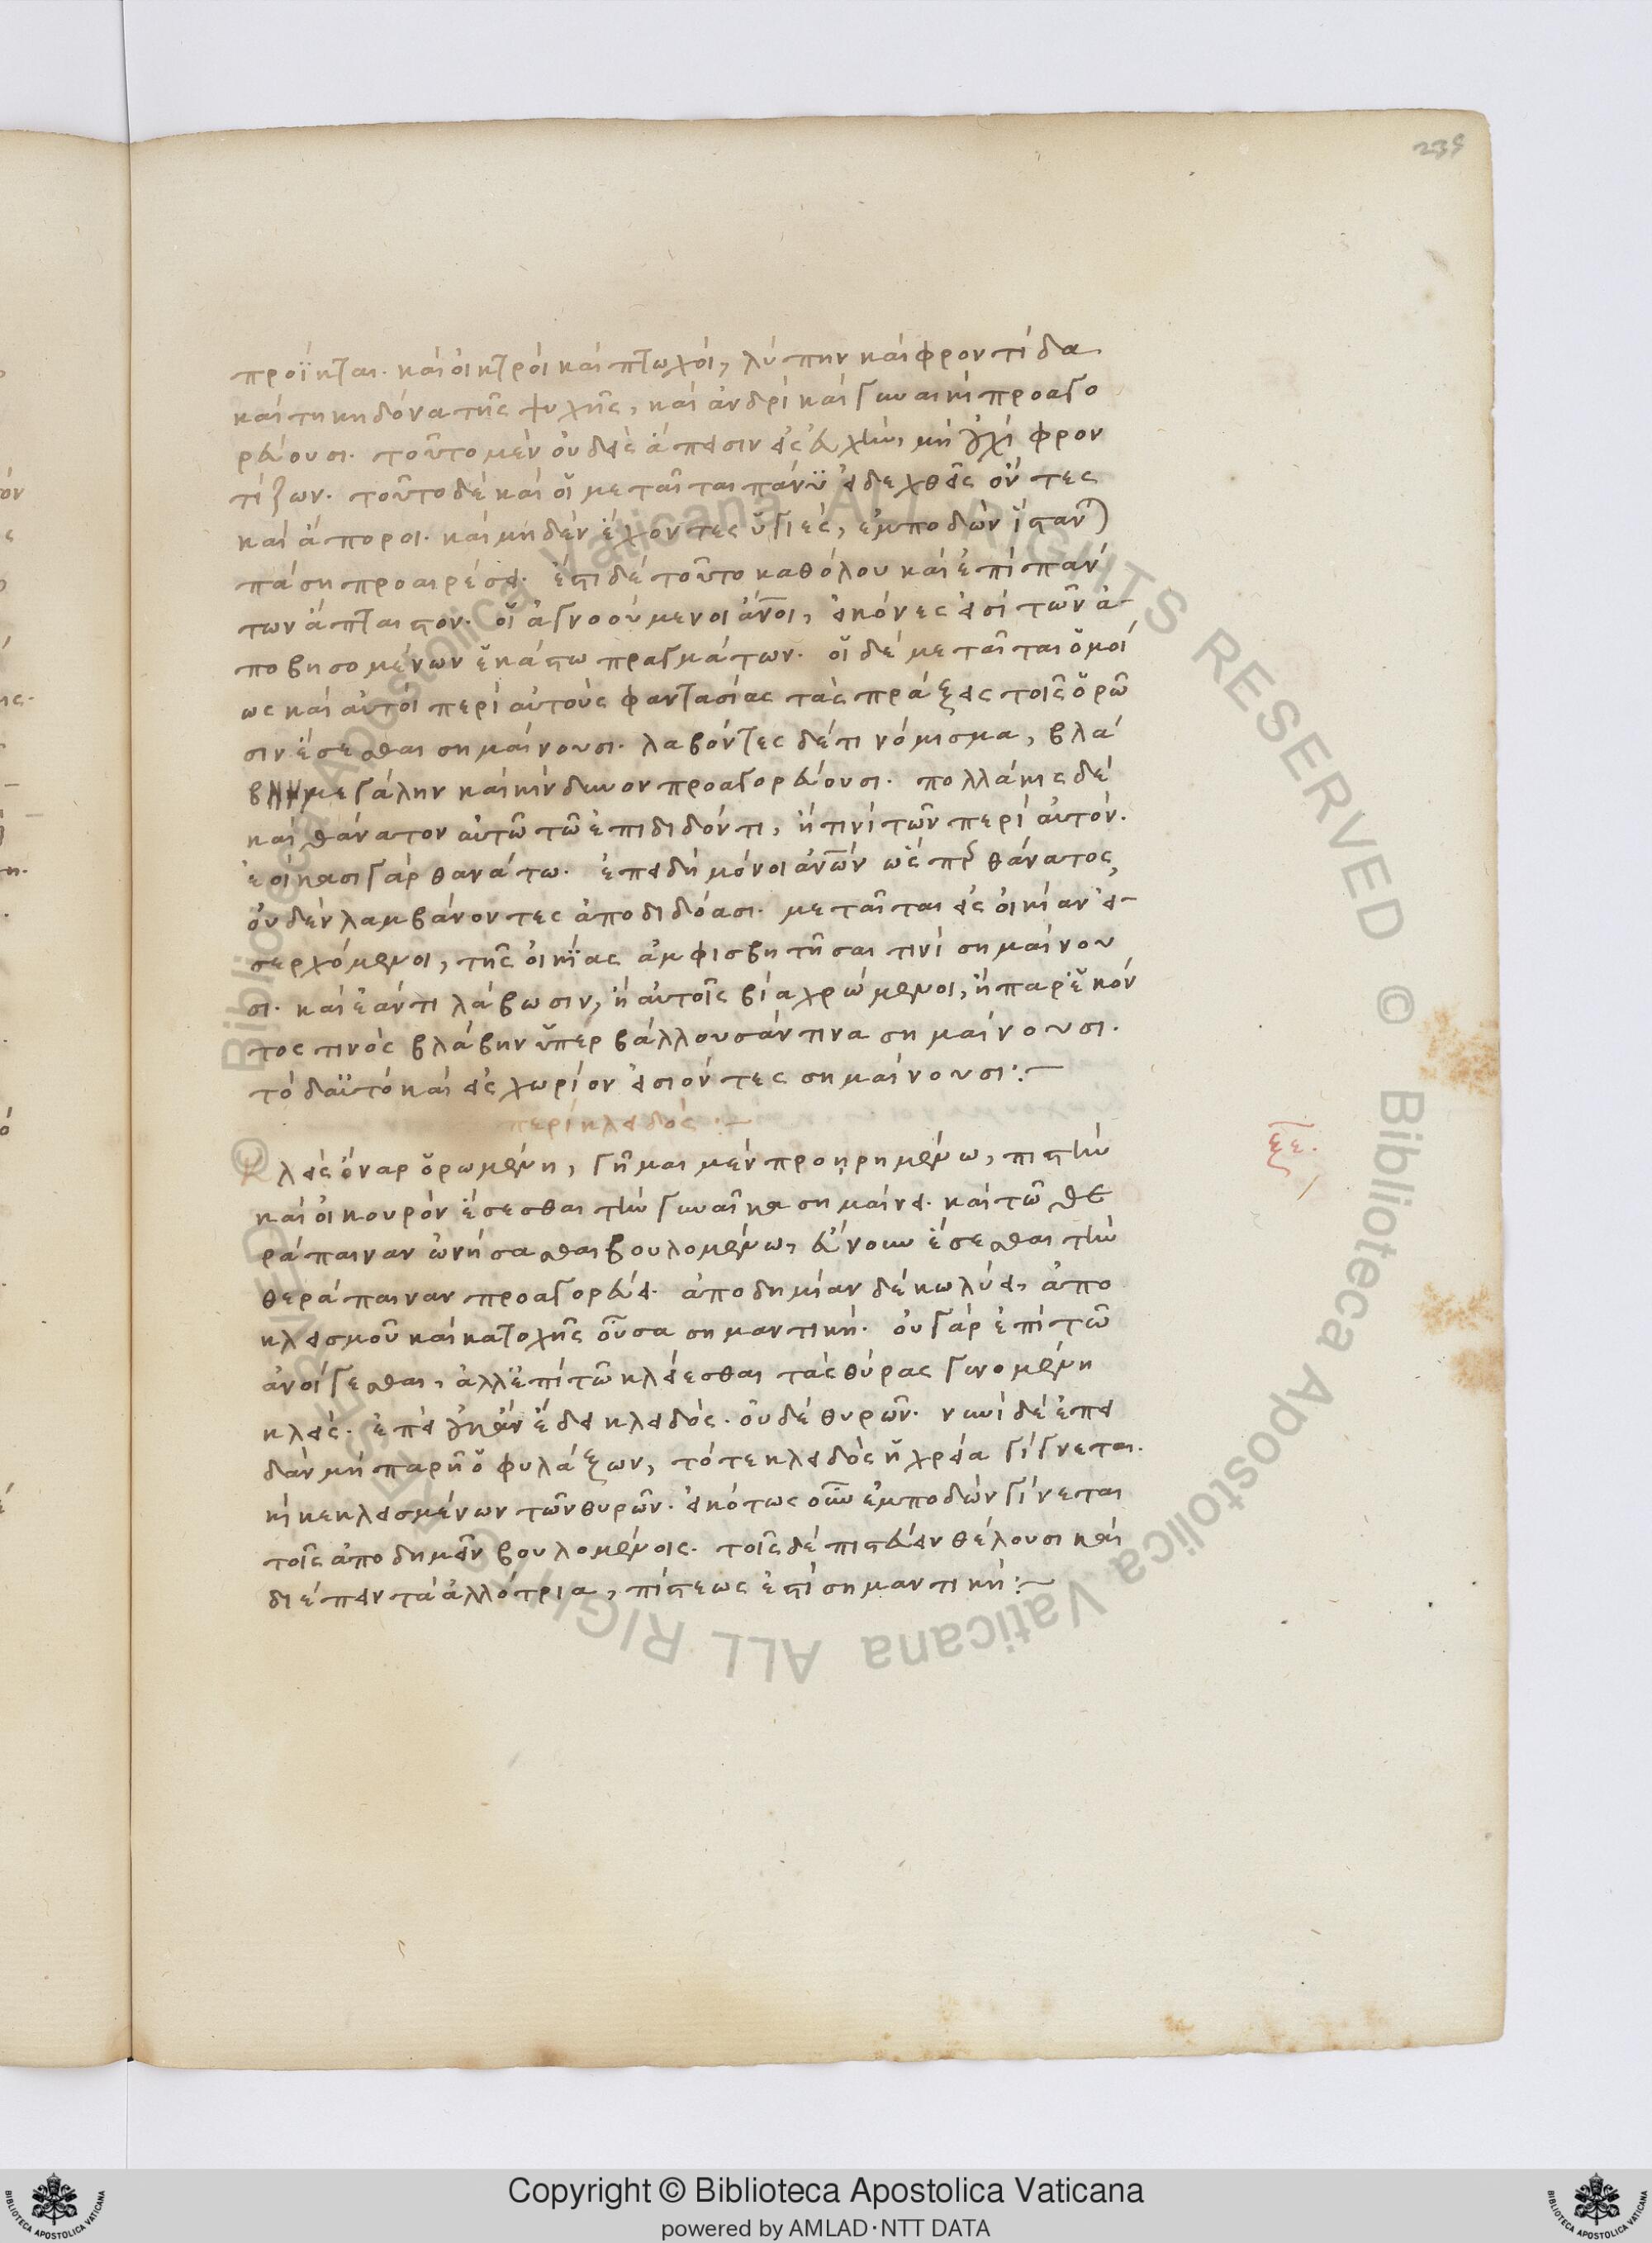 239
προΐκται. καὶ οἰκτροὶ καὶ πτωχοὶ, λύπην καὶ φροντίδα
καὶ τηκηδόνα τῆς ψυχῆς, καὶ ἀνδρὶ καὶ γυναικὶ προαγο
ρεύουσι. τοῦτο μὲν οὐδεὶς ἅπασιν εἰς εὐχὴν, μὴ οὐχὶ φρον
τίζων. τοῦτο δὲ καὶ οἱ μεταῖται πάνυ εἰδεχθεῖς ὄντες
καὶ ἄποροι. καὶ μηδὲν ἔχοντες ὑγιὲς, ἐμποδὼν ἵσταν)
πάση προαιρέσει. ἔστι δὲ τοῦτο καθόλου καὶ ἐπὶ πάν
των ἄπταιστον. οἱ ἀγνοούμενοι ἄνοι, εἰκόνες εἰσὶ τῶν ἀ-
ποβησομένων ἑκάστω πραγμάτων. οἱ δὲ μεταῖται ὁμοί
ως καὶ αὐτοὶ περὶ αὐτοὺς φαντασίας τὰς πράξεις τοῖς ὁρῶ
σιν ἔσεσθαι σημαίνουσι. λαβόντες δέ τι νόμισμα, βλά
βην μεγάλην καὶ κίνδυνον προαγορεύουσι. πολλάκις δὲ
καὶ θάνατον αὐτῶ τῶ ἐπιδιδόντι, ἤ τινὶ τῶν περὶ αὐτόν.
ἐοίκασι γὰρ θανάτω. ἐπειδὴ μόνοι ἀνῶν ὥσπερ θάνατος,
οὐδὲν λαμβάνοντες ἀποδιδόασι. μεταῖται εἰς οἰκίαν εἰ-
σερχόμενοι, τῆς οἰκίας ἀμφισβητῆσαι τινὶ σημαίνου
σι. καὶ ἐάν τι λάβωσιν, ἢ αὐτοῖς βία χρώμενοι, ἢ παρ' ἑκόν
τος τινὸς βλάβην ὑπερβάλλουσάν τινα σημαίνουσι.
τὸ δ' αὐτὸ καὶ εἰς χωρίον εἰσιόντες σημαίνουσι:–
περὶ κλειδός:–
ξε.
Κλεὶς ὄναρ ὁρωμένη, γῆμαι μὲν προῃρημένω, πιστὴν
καὶ οἰκουρὸν ἔσεσθαι τὴν γυναῖκα σημαίνει. καὶ τῶ θε
ράπαιναν ὠνήσασθαι βουλομένω, εὔνουν ἔσεσθαι τὴν
θεράπαιναν προαγορεύει. ἀποδημίαν δὲ κωλύει, ἀπο
κλεισμοῦ καὶ κατοχῆς οὖσα σημαντική. οὐ γὰρ ἐπὶ τῶ
ἀνοίγεσθαι, ἀλλ' ἐπὶ τῶ κλείεσθαι τὰς θύρας γινομένη
κλείς. ἐπεὶ οὐκ ἂν ἔδει κλειδός. οὐδὲ θυρῶν. νυνὶ δὲ ἐπει
δὰν μὴ παρῆ ὁ φυλάξων, τότε κλειδὸς ἡ χρεία γίγνεται.
κὶ κεκλεισμένων τῶν θυρῶν. εἰκότως οὖν ἐμποδὼν γίνεται
τοῖς ἀποδημεῖν βουλομένοις. τοῖς δὲ πιστεύειν θέλουσι καὶ
διέπειν τὰ ἀλλότρια, πίστεως ἐστὶ σημαντική:–
Copyright © Biblioteca Apostolica Vaticana
powered by AMLAD·NTT DATA